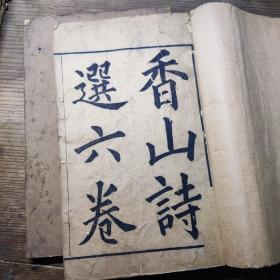 香山詩
選六卷